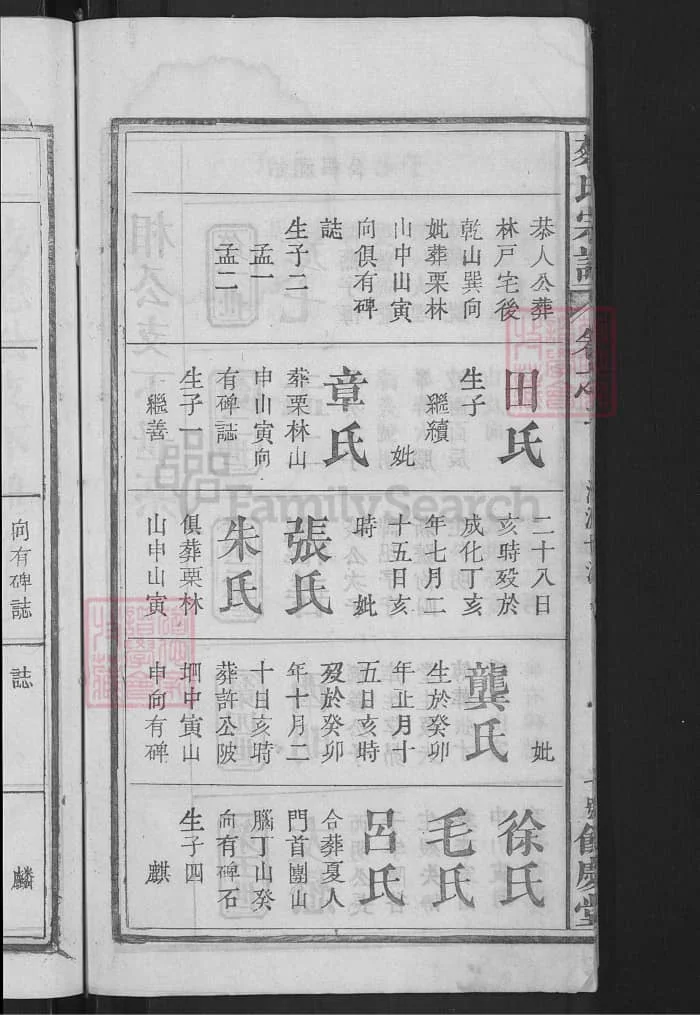 恭人公葬
林戸宅後
乾山巽向
妣葬栗林
山中山寅
向俱有碑
誌
生子二
孟一
孟二
田氏
生子
繼續
妣
章氏
葬栗林山
申山寅向
有碑誌
生子一
繼善
二十八日
亥時殁於
成化丁亥
年七月二
十五日亥
時
妣
張氏
朱氏
俱葬栗林
山申山寅
向有碑誌
妣
龔氏
生於癸卯
年正月十
五日亥時
殁於癸卯
年十月二
十日亥時
葬許公陂
垇中寅山
申向有碑
誌
徐氏
毛氏
呂氏
合葬夏人
門首團山
腦丁山癸
向有碑石
生子四
麒
麟
氏宗譜
餘慶堂
FamilySearch